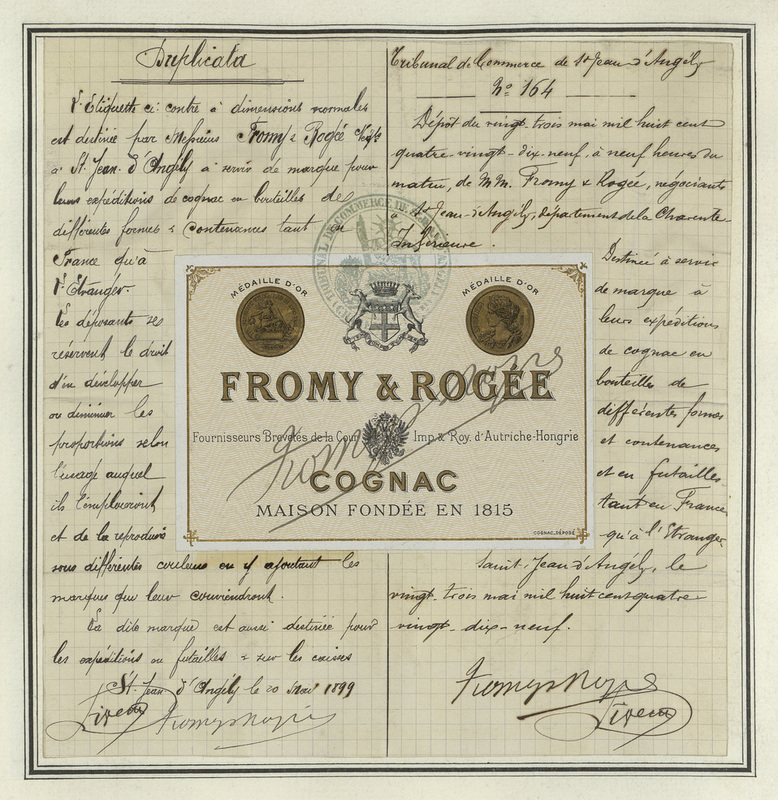 Duplicata
L'Etiquette ci-contre à dimensions normales
est destinée par Messieurs Fromy & Rogée
à St. Jean-d'Angély à servir de marque pour
leurs expéditions de cognac en bouteilles de
différentes formes & contenances tant en
France qu'à
l'Etranger.
Les déposants se
réservent le droit
d'en développer
ou diminuer les
proportions selon
l'usage auquel
ils l'emploieront
et de la reproduire
sous différentes couleurs en y ajoutant les
marques que leur conviendront.
La dite marque est aussi destinée pour
les expéditions en futailles & sur les caisses
St. Jean d'Angély le 20 Mai 1899
Fromy Rogée
Tribunal de Commerce de St Jean d'Angély
No 164
Dépôt du vingt-trois mai mil huit cent
quatre-vingt-dix-neuf, à neuf heures du
matin, de MM. Fromy & Rogée, négociants
à St Jean-d'Angély, Département de la Charente-
Inférieure.
Destinée à servir
de marque à
leurs expéditions
de cognac en
bouteilles de
différentes formes
et contenances
et en futailles
tant en France
qu'à l'Etranger
Saint-Jean d'Angély, le
vingt-trois mai mil huit cent quatre
vingt-dix-neuf.
Fromy Rogée
MÉDAILLE D'OR
MÉDAILLE D'OR
FROMY & ROGÉE
Fournisseurs Brevetés de la Cour Imp. & Roy. d'Autriche-Hongrie
COGNAC
MAISON FONDÉE EN 1815
COGNAC, DÉPOSÉ
Fromy Rogée